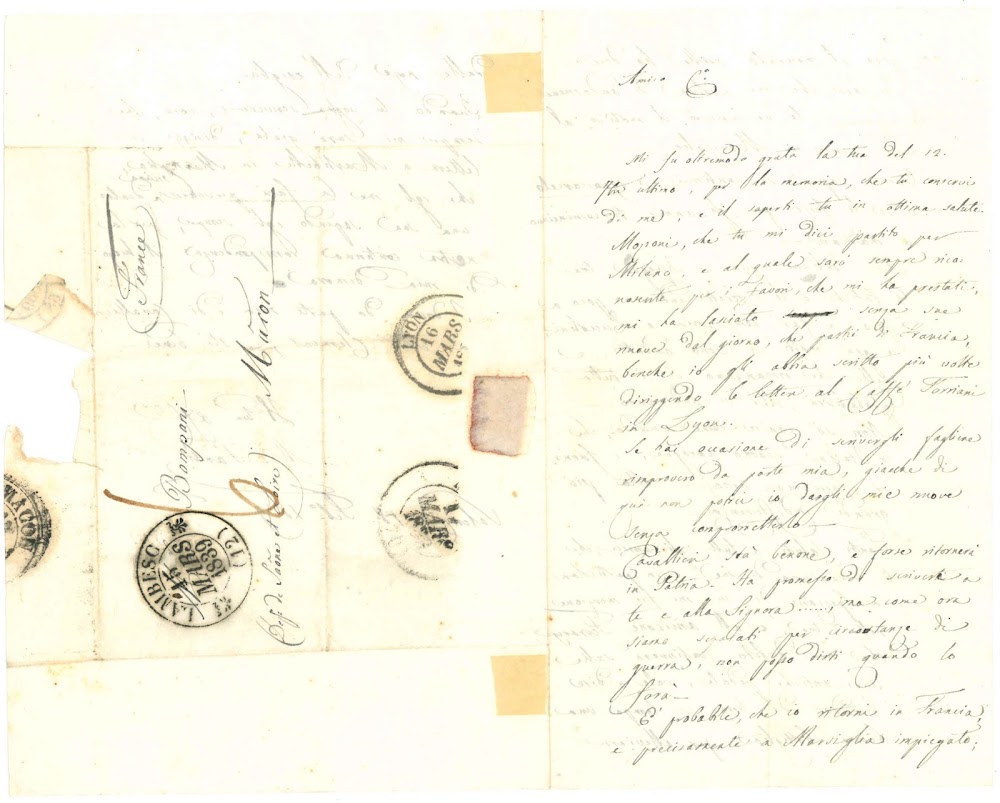 Amico C.o
Mi fu oltremodo grata la tua del 12.
ultimo, per la memoria, che tu conservi
di me, e il saperti tu in ottima salute.
Mosconi, che tu mi dici partito per
Milano, e al quale sarò sempre rico-
noscente per i favori, che mi ha prestati,
mi ha lasciato senza sue
nuove dal giorno, che partì di Francia,
benche io gli abbia scritto più volte
diriggendo le lettere al Caffé Forniani
in Lyon.
Se hai occasione di scrivergli fagliene
rimprovero da parte mia, giacche di
quà non potrei io dargli mie nuove
senza comprometterlo.
Cavallieri stà benone, e forse ritornerà
in Patria. Ha promesso di scrivere a
te e alla Signora ......; ma come ora
siamo separati per circostanze di
guerra, non posso dirti quando lo
farà—
E' probabile, che io ritorni in Francia,
e precisamente a Marsiglia impiegato;
France
Bompani
à Macon
(Dipt. de Saône et Loire)
6
LAMBESC (12)
15 MARS 1839
LYON
16 MARS
MARS
MACON